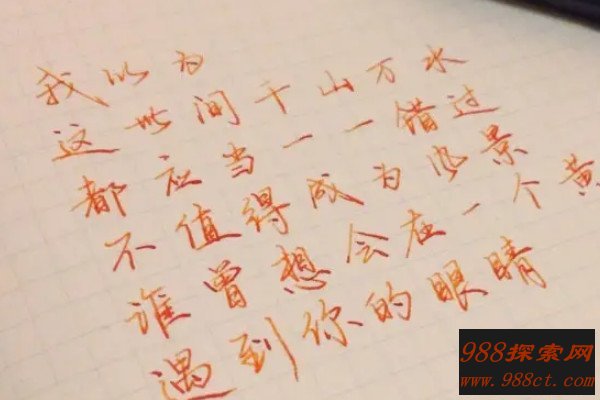 我以为
这世间千山万水
都应当一一错过
不值得成为风景
谁曾想会在一个黄
遇到你的眼睛
988探索网
www.988ct.com